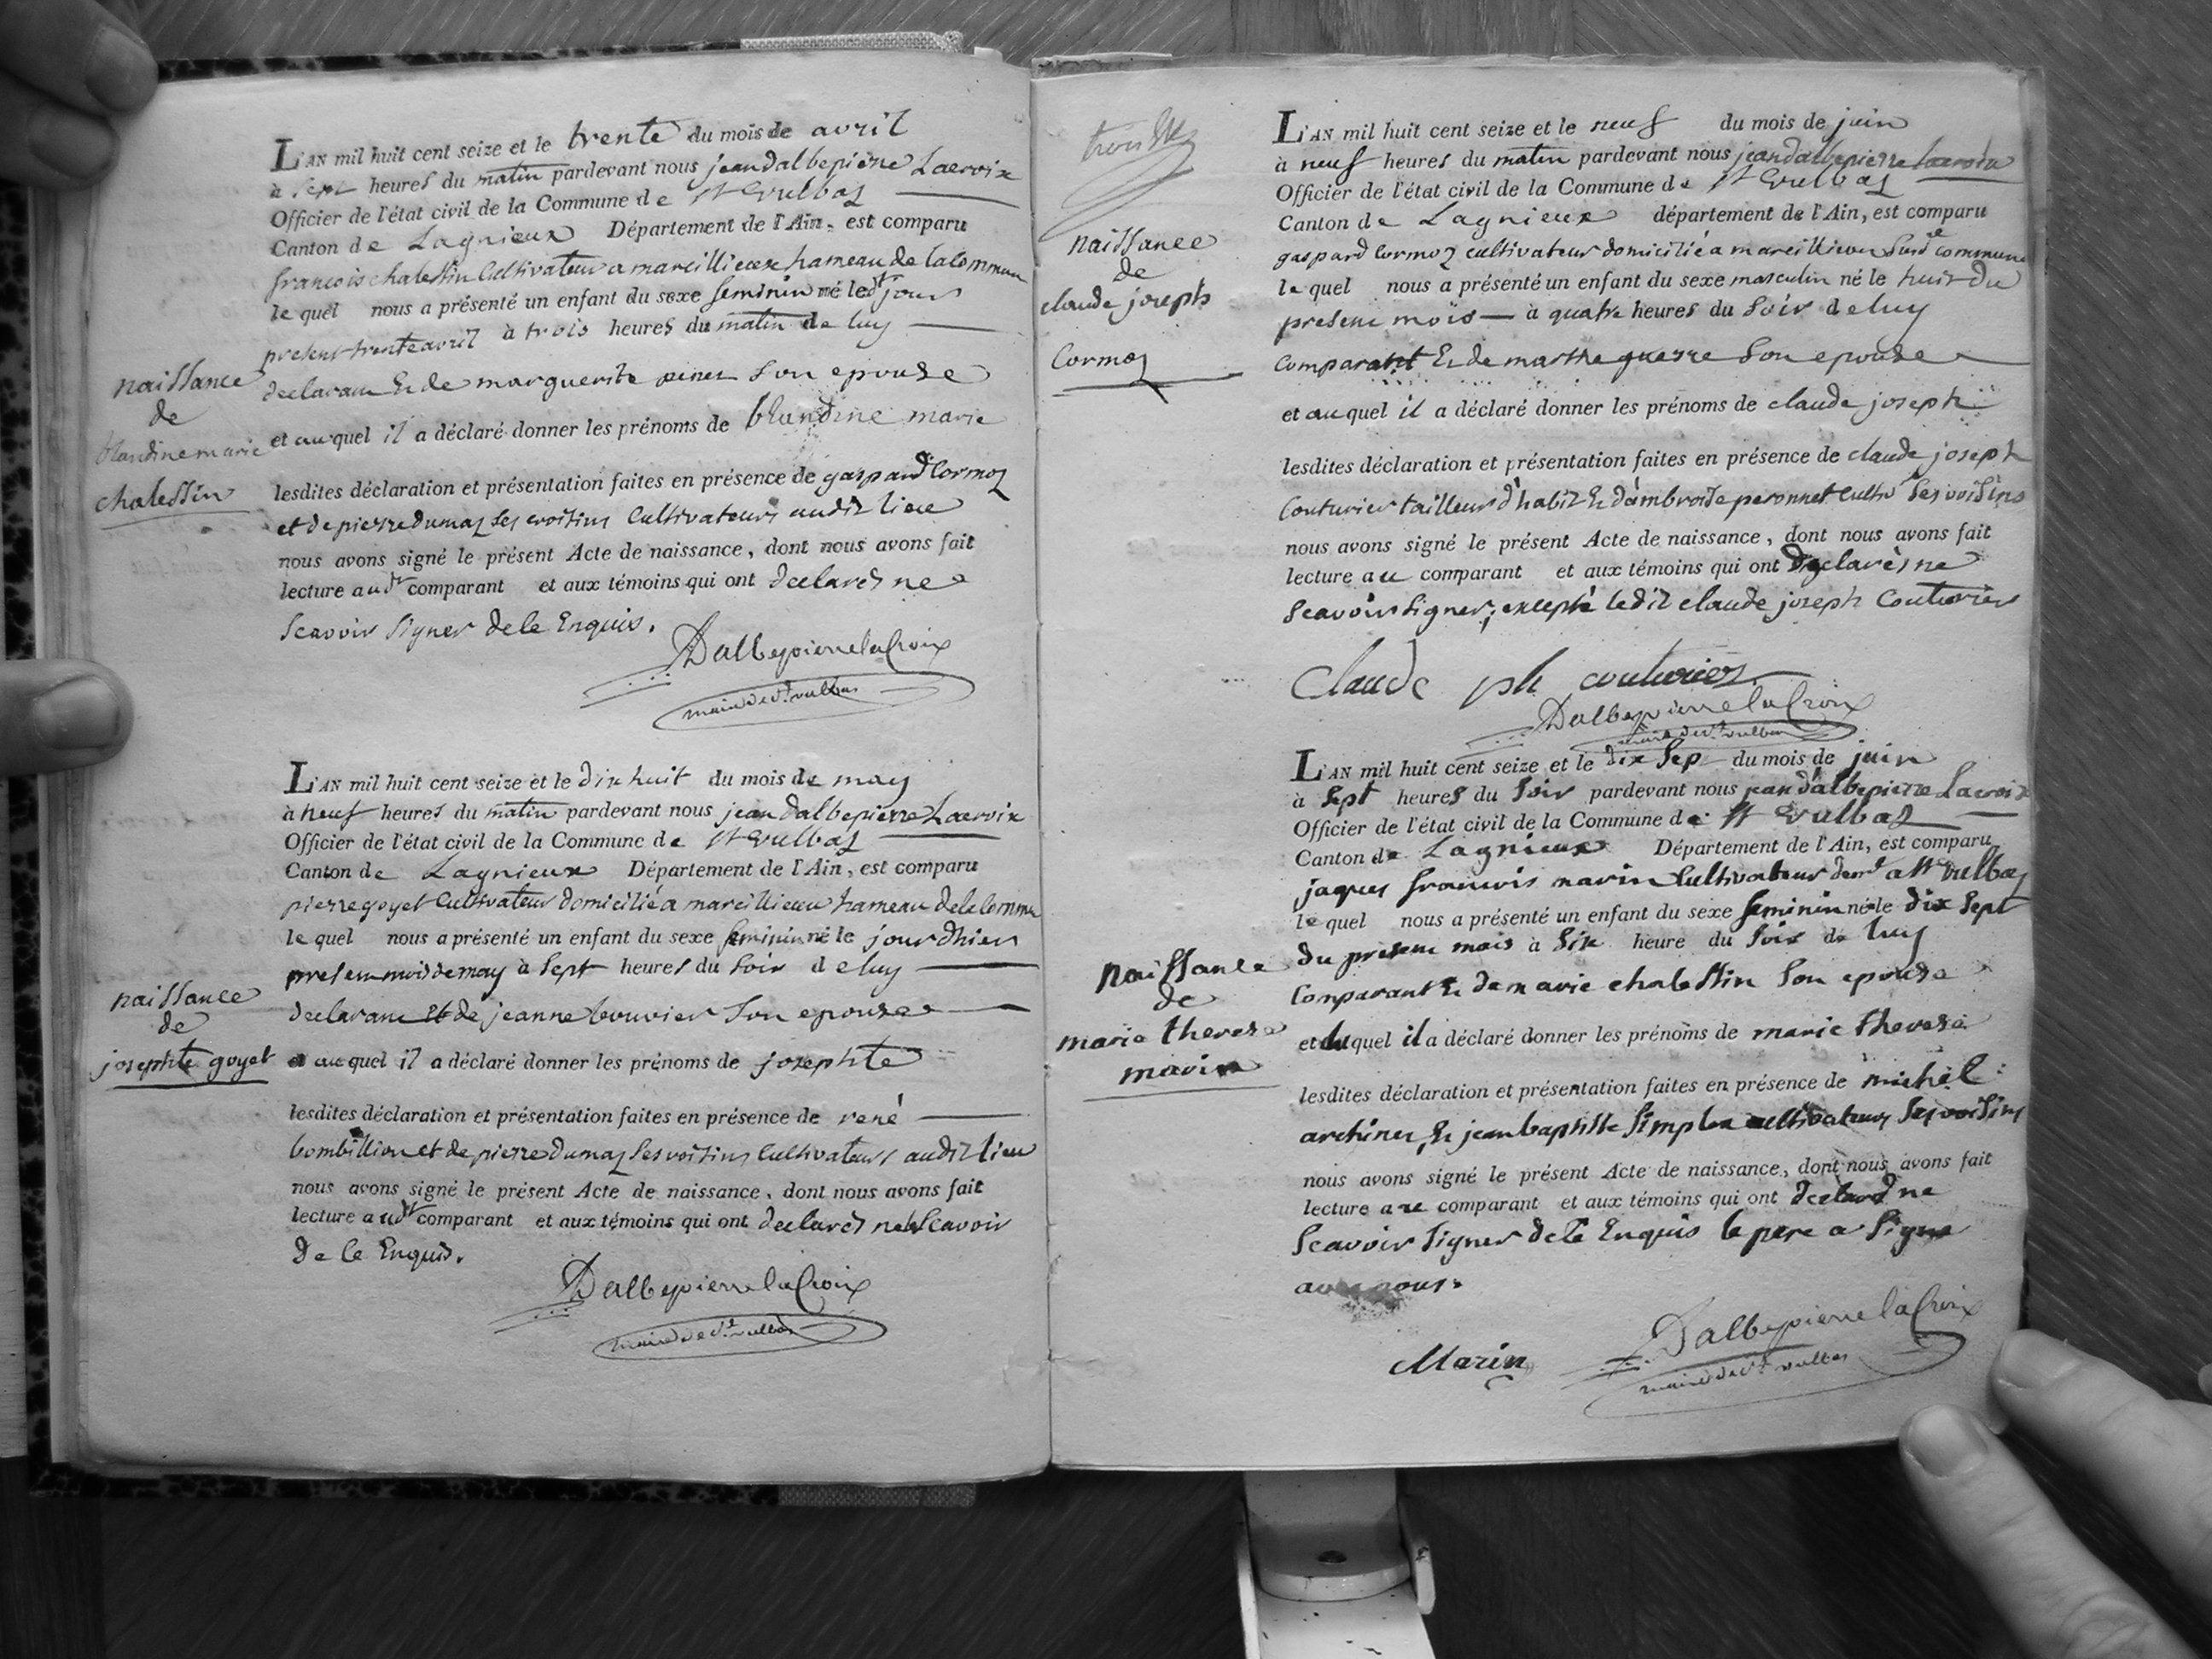 L'AN mil huit cent seize et le trente du mois de avril
à sept heures du matin pardevant nous jean dalbepierre Lacroix
Officier de l'état civil de la Commune de St Vulbas
Canton de Lagnieux Département de l'Ain, est comparu
francois chalessin Cultivateur a marcillieux hameau de la Commune
le quel nous a présenté un enfant du sexe feminin né le dt jour
present trente avril à trois heures du matin de luy
naissance
de
blandine marie
chalessin
declarant & de marguerite son epouse
et au quel il a déclaré donner les prénoms de blandine marie
lesdites déclaration et présentation faites en présence de gaspard Cormoz
et de pierre dumas ses voisins Cultivateurs audit lieu
nous avons signé le présent Acte de naissance, dont nous avons fait
lecture au dt comparant et aux témoins qui ont declarés ne
scavoir signer de ce Enquis.
Dalbepierre la Croix
maire de St vulbas
L'AN mil huit cent seize et le dix huit du mois de may
à neuf heures du matin pardevant nous jean dalbepierre Lacroix
Officier de l'état civil de la Commune de St Vulbas
Canton de Lagnieux Département de l'Ain, est comparu
pierre goyet Cultivateur domicilié a marcillieux hameau de le Commu
le quel nous a présenté un enfant du sexe feminin né le jour dhier
present mois de may à sept heures du soir de luy
naissance
de
josephte goyet
declarant et de jeanne bouvier son epouse
et au quel il a déclaré donner les prénoms de josephte
lesdites déclaration et présentation faites en présence de rené
bombillion et de pierre dumas ses voisins Cultivateurs audit lieu
nous avons signé le présent Acte de naissance, dont nous avons fait
lecture au dt comparant et aux témoins qui ont declarés ne le scavoir
de ce Enquis.
Dalbepierre la Croix
maire de St vulbas
L'AN mil huit cent seize et le neuf du mois de juin
à neuf heures du matin pardevant nous jean dalbepierre lacroix
Officier de l'état civil de la Commune de St Vulbas
Canton de Lagnieux département de l'Ain, est comparu
naissance
de
claude joseph
Cormoz
gaspard Cormoz cultivateur domicilié a marcillieux susde commune
le quel nous a présenté un enfant du sexe masculin né le huit du
present mois à quatre heures du soir de luy
comparant & de marthe guerre son epouse
et au quel il a déclaré donner les prénoms de claude joseph
lesdites déclaration et présentation faites en présence de claude joseph
Couturier tailleur d'habit & d'ambroise peronnet Cultiv ses voisins
nous avons signé le présent Acte de naissance, dont nous avons fait
lecture au comparant et aux témoins qui ont declarés ne
scavoir signer, excepté ledit claude joseph Couturier
Claude jph couturier
Dalbepierre la Croix
maire de St vulbas
L'AN mil huit cent seize et le dix sept du mois de juin
à sept heures du soir pardevant nous jean dalbepierre Lacroix
Officier de l'état civil de la Commune de St Vulbas
Canton de Lagnieux Département de l'Ain, est comparu
jaques francois marin Cultivateur demt a St Vulbas
le quel nous a présenté un enfant du sexe feminin né le dix sept
du present mois à six heure du soir de luy
naissance
de
marie therese
marin
Comparant & de marie chalessin son epouse
et du quel il a déclaré donner les prénoms de marie therese
lesdites déclaration et présentation faites en présence de michel
& jean baptiste simplex cultivateurs ses voisins
nous avons signé le présent Acte de naissance, dont nous avons fait
lecture au comparant et aux témoins qui ont declaré ne
scavoir signer de ce Enquis le pere a signé
avec nous.
Marin
Dalbepierre la Croix
maire de St vulbas